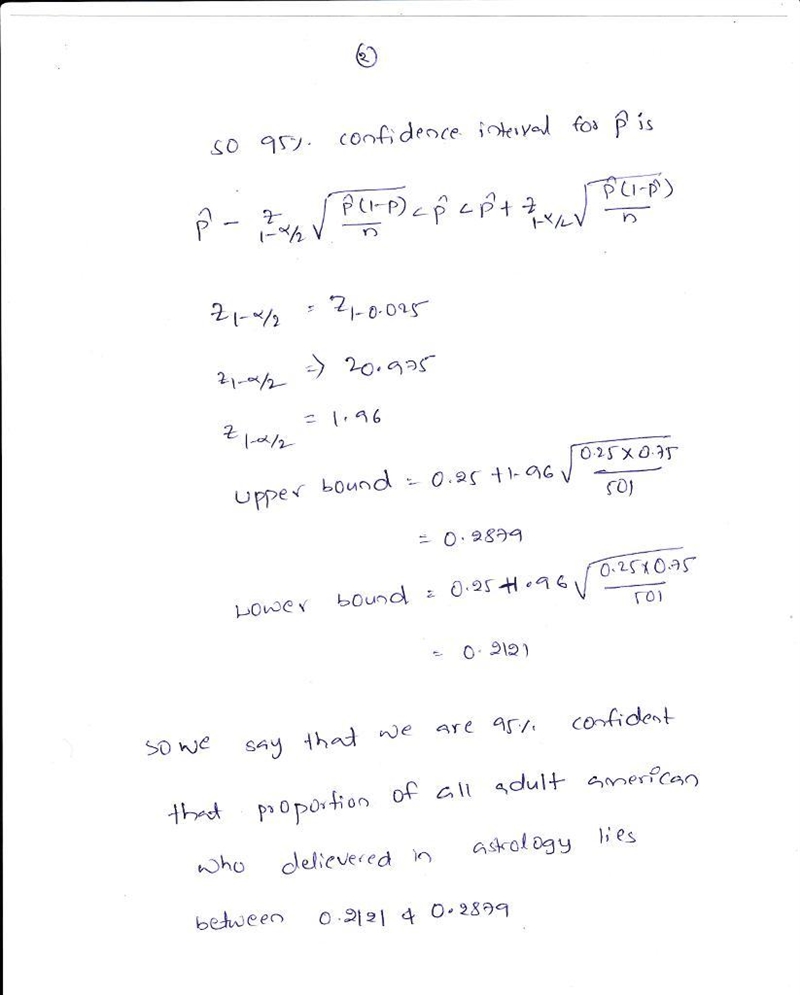 2
so 95%. confidence interval for p̂ is
p̂ - z_{1-α/2} √(p̂(1-p)/n) < p̂ < p̂ + z_{1-α/2} √(p̂(1-p̂)/n)
z_{1-α/2} = z_{1-0.025}
z_{1-α/2} => z0.975
z_{1-α/2} = 1.96
upper bound = 0.25 + 1.96 √(0.25 x 0.75/501)
= 0.2879
Lower bound = 0.25 +1.96 √(0.25 x 0.75/501)
= 0.2121
so we say that we are 95%. confident
that proportion of all adult american
who delievered in astrology lies
between 0.2121 & 0.2879